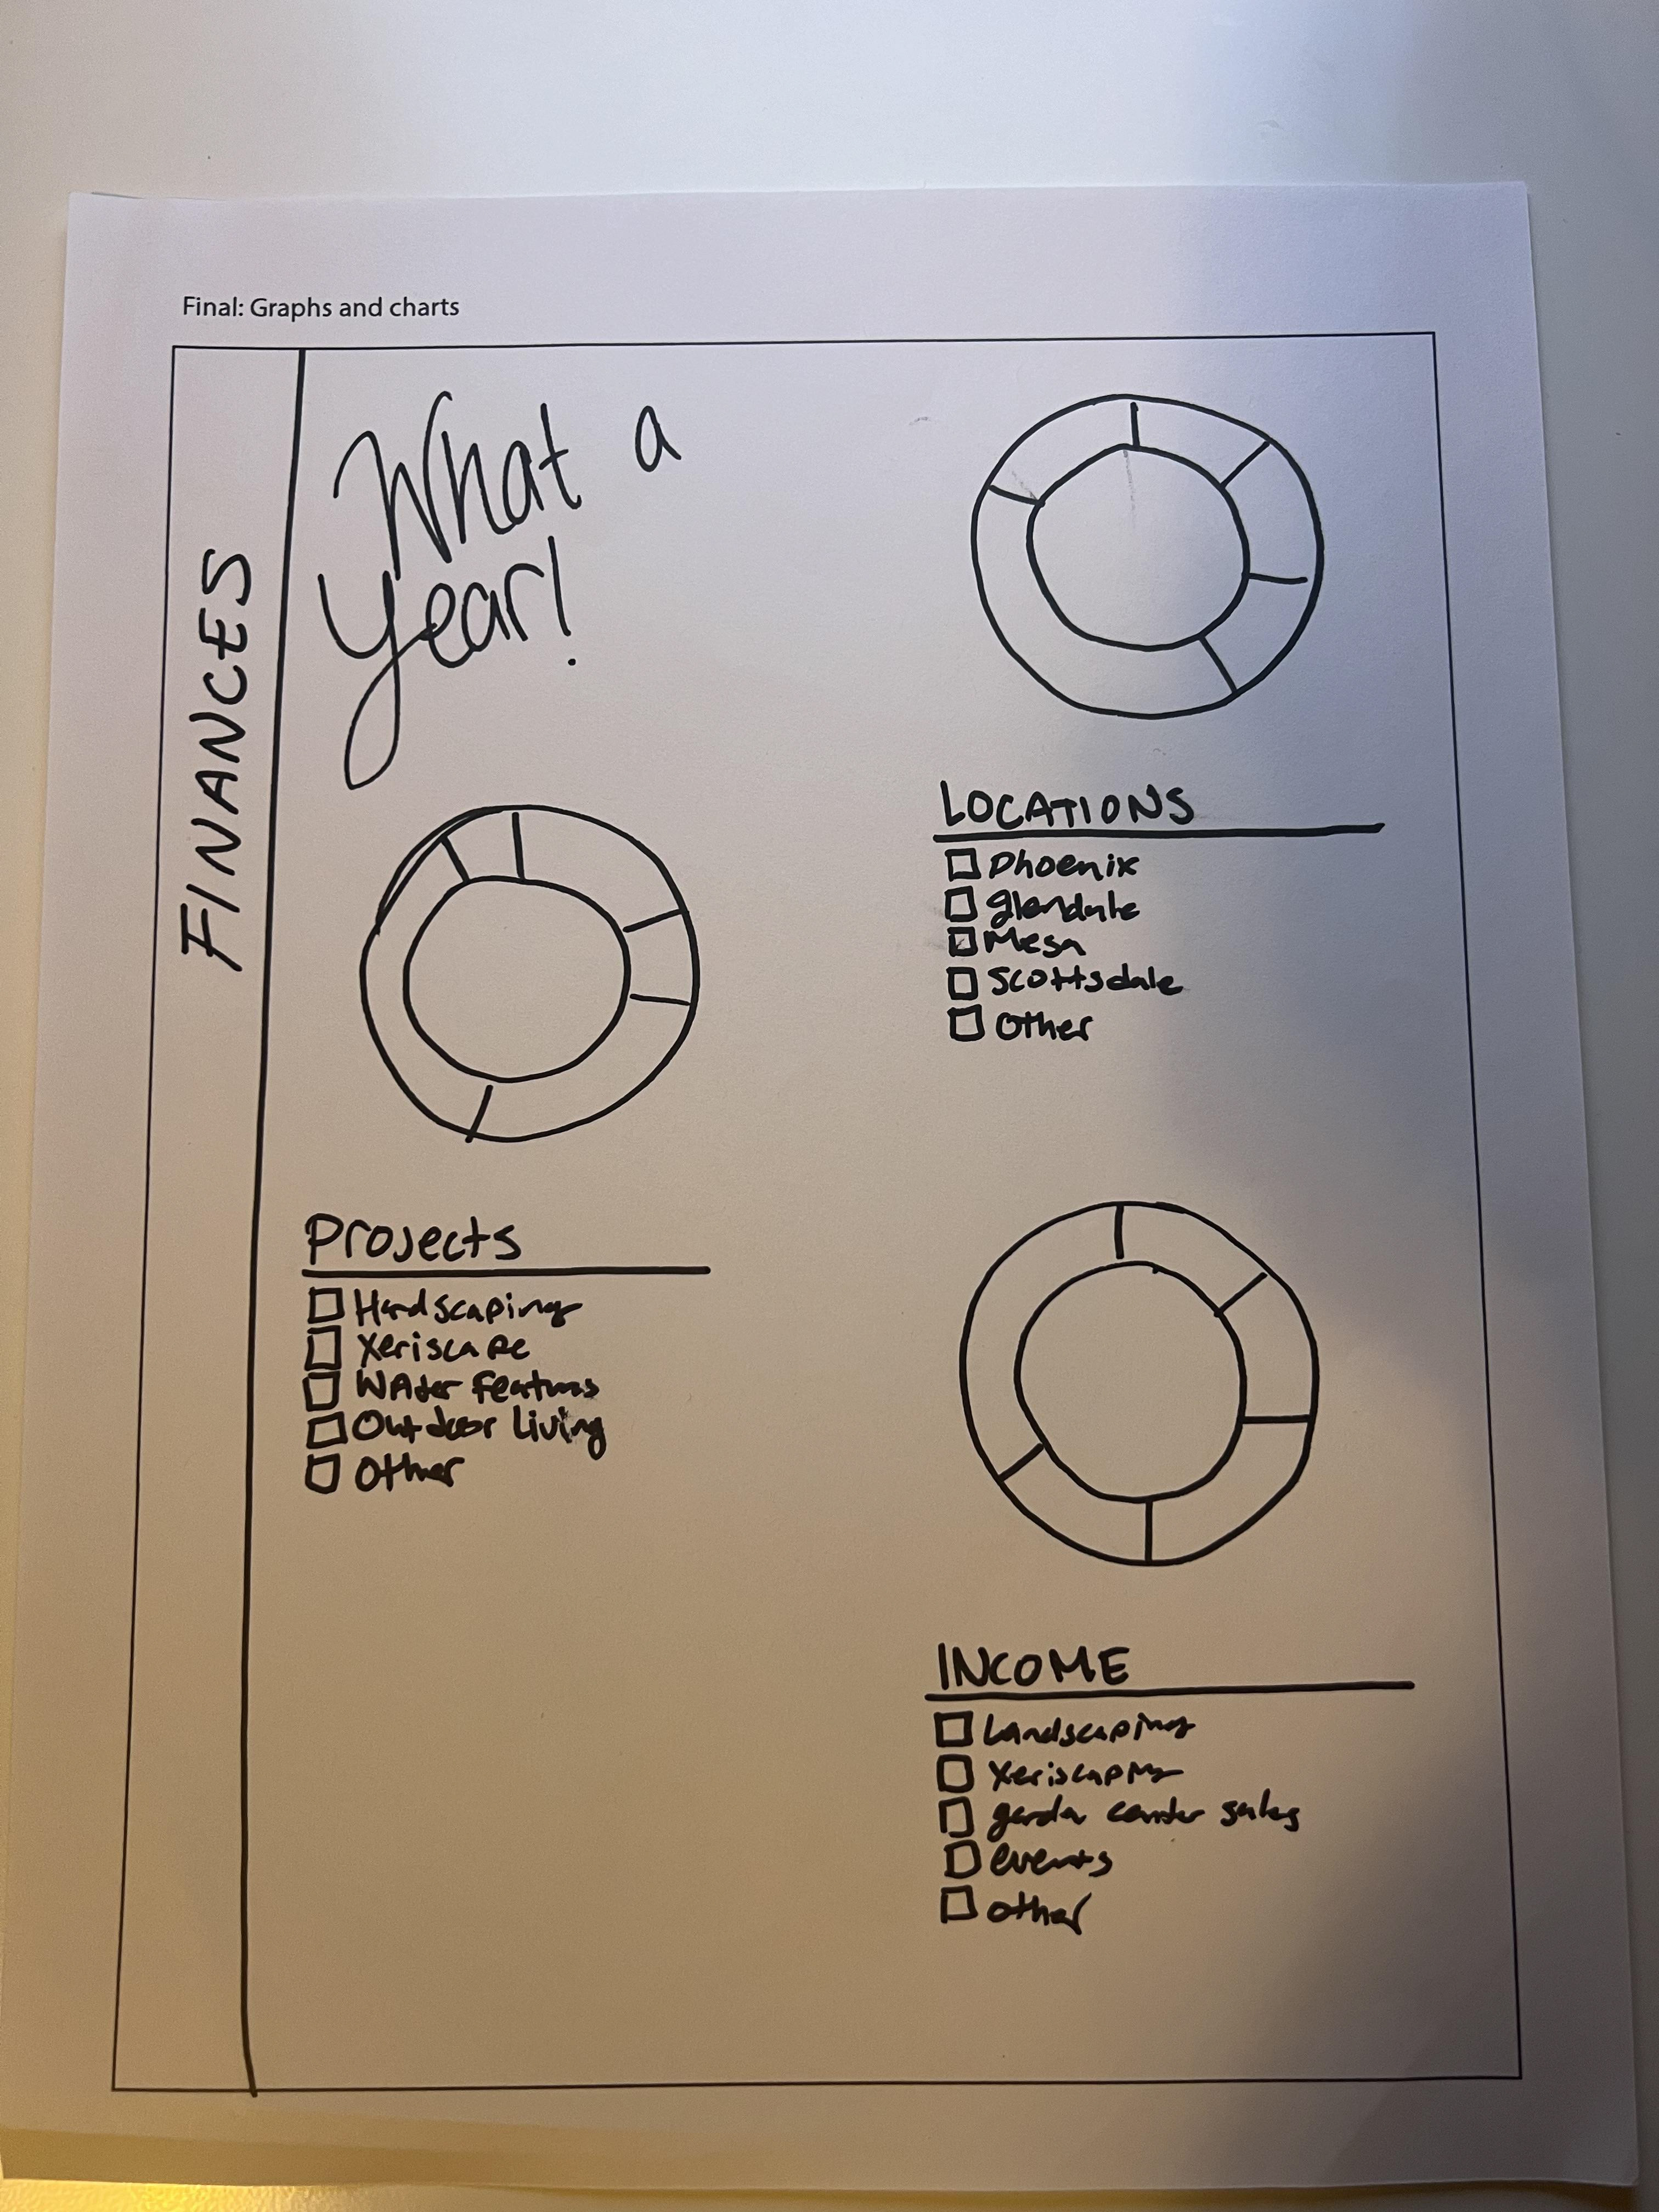 Final: Graphs and charts
FINANCES
What a
Year!
LOCATIONS
Phoenix
glendale
Mesa
Scottsdale
Other
Projects
Hardscaping
Xeriscape
WAter features
Outdoor Living
Other
INCOME
Landscaping
Xeriscaping
garden center sales
events
other